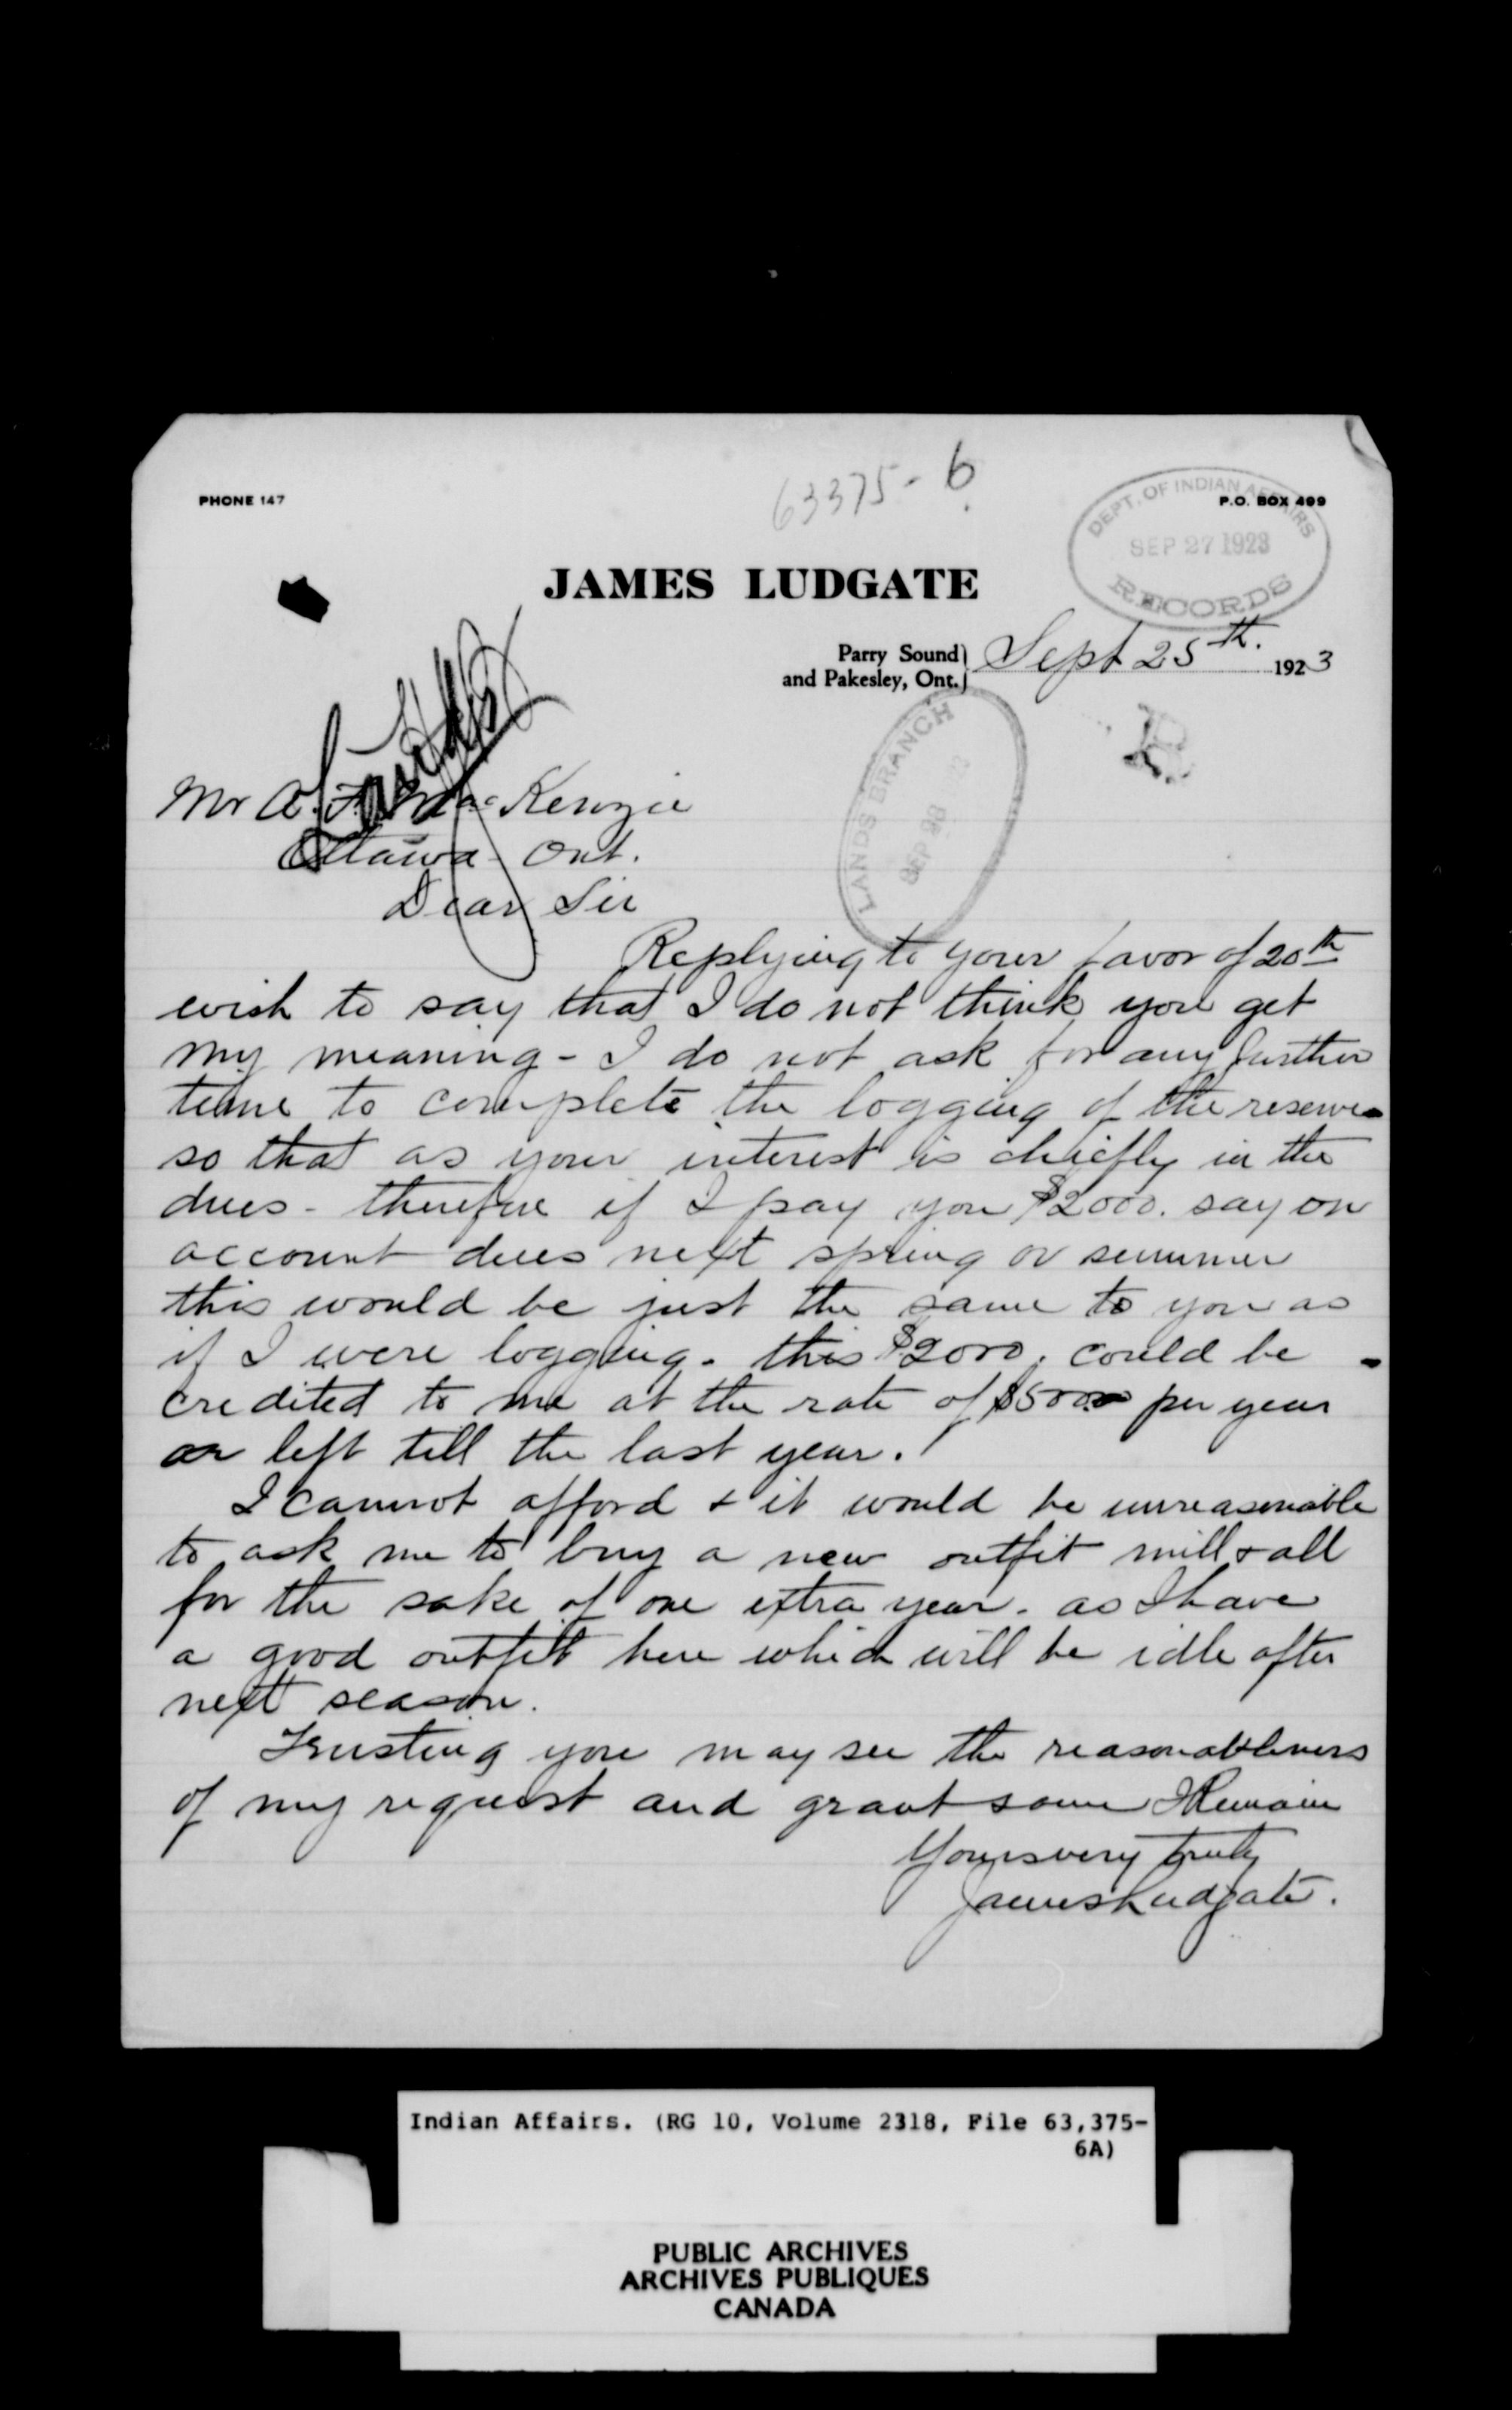 63375-6
PHONE 147
P.O. BOX 499
DEPT. OF INDIAN AFFAIRS
SEP 27 1923
RECORDS
JAMES LUDGATE
Parry Sound
and Pakesley, Ont.
Sept 25th. 1923
LANDS BRANCH
SEP 28
Mr A. F. MacKenzie
Ottawa - Ont.
Dear Sir
Replying to your favor of 20th
wish to say that I do not think you get
my meaning - I do not ask for any further
time to complete the logging of the reserve
so that as your interest is chiefly in the
dues - therefore if I pay you $2000. say on
account dues next spring or summer
this would be just the same to you as
if I were logging. this $2000. could be
credited to me at the rate of $500 per year
or left till the last year.
I cannot afford & it would be unreasonable
to ask me to buy a new outfit mill & all
for the sake of one extra year. as I have
a good outfit here which will be idle after
next season.
Trusting you may see the reasonableness
of my request and grant same I Remain
Yours very truly
James Ludgate.
Indian Affairs. (RG 10, Volume 2318, File 63,375-
6A)
PUBLIC ARCHIVES
ARCHIVES PUBLIQUES
CANADA